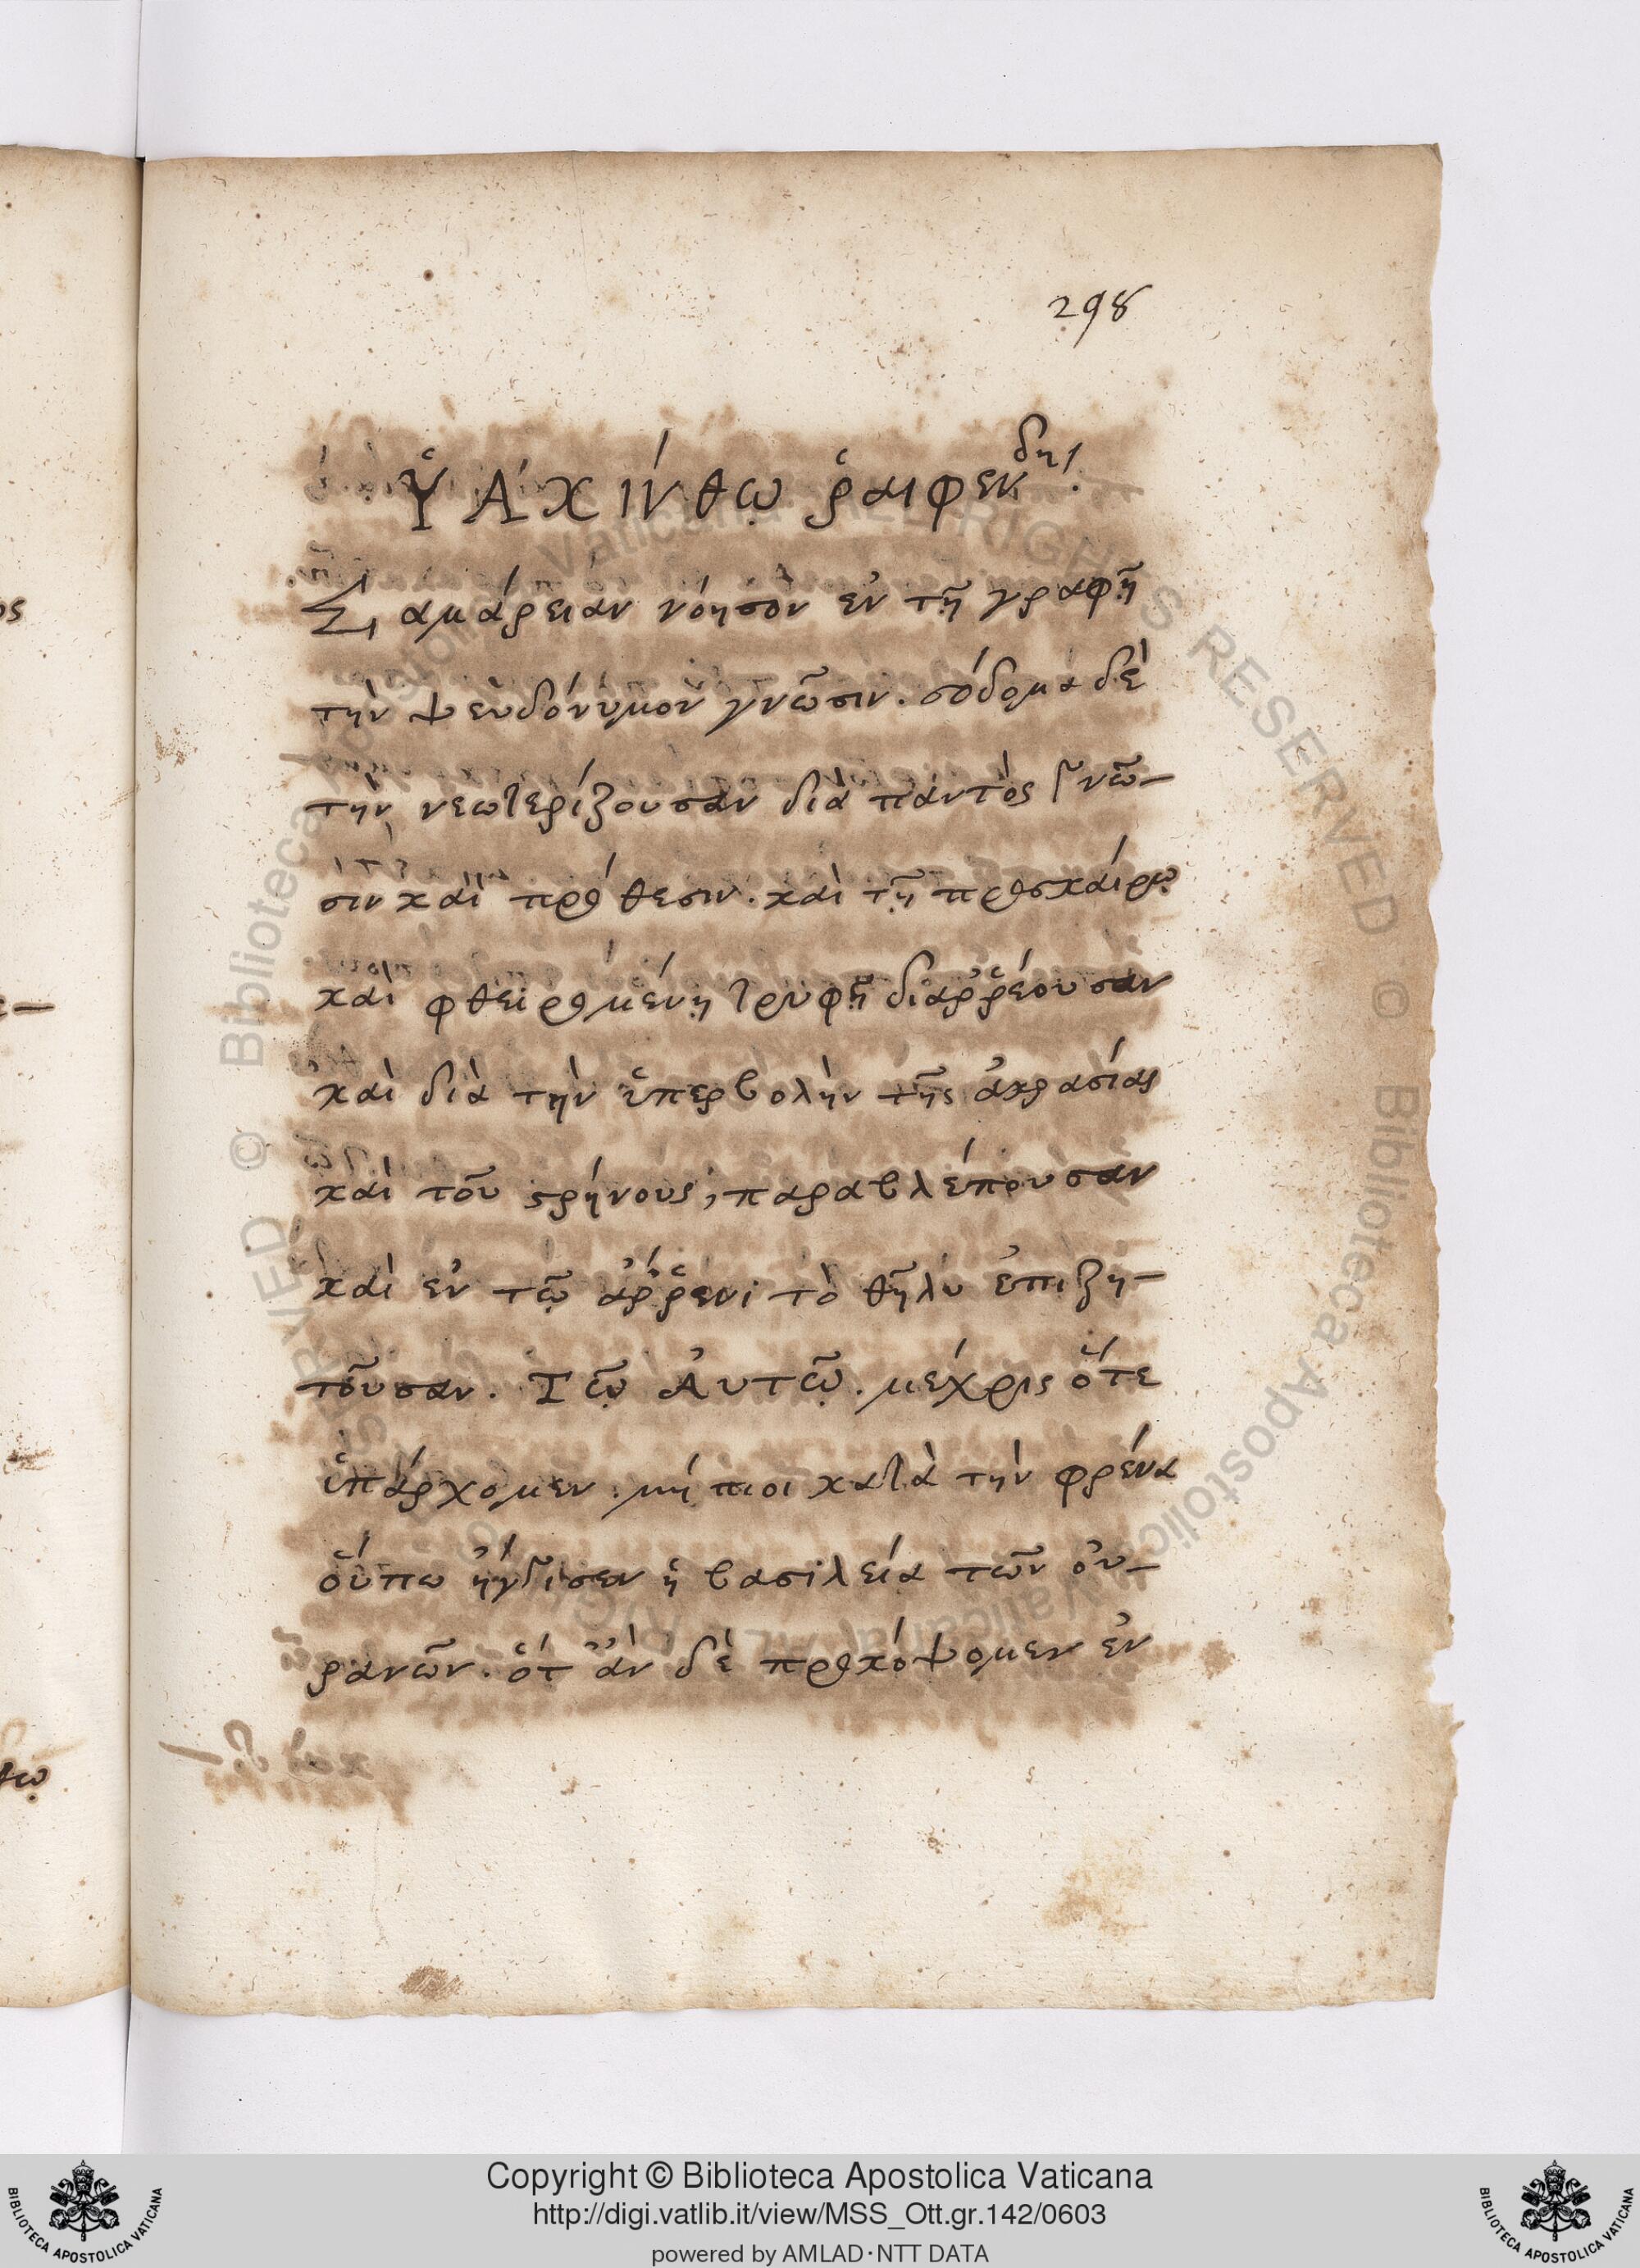 298
Ὑακίνθῳ ῥαιφενδη.
Σαμάρειαν νόησον ἐν τῇ γραφῇ
τὴν ψευδόνυμον γνῶσιν. σόδομα δὲ
τὴν νεωτερίζουσαν διὰ παντὸς γνῶ-
σιν καὶ πρόθεσιν. καὶ τῇ προσκαίρω
καὶ φθειρομένῃ τρυφῇ διαῤῥέουσαν
καὶ διὰ τὴν ὑπερβολὴν τῆς ἀκρασίας
καὶ τοῦ στρήνους, παραβλέπουσαν
καὶ ἐν τῷ ἄῤῥενι τὸ θῆλυ ἐπιζη-
τοῦσαν. Τῷ Αὐτῷ. μέχρις ὅτε
ὑπάρχομεν. νήπιοι κατὰ τὴν φρένα
οὔπω ἤγγισεν ἡ βασιλεία τῶν οὐ-
ρανῶν. ὅτ ἂν δὲ προκόψομεν ἐν
© Biblioteca Apostolica Vaticana, ALL RIGHTS RESERVED
Copyright © Biblioteca Apostolica Vaticana
http://digi.vatlib.it/view/MSS_Ott.gr.142/0603
powered by AMLAD·NTT DATA
BIBLIOTECA APOSTOLICA VATICANA
BIBLIOTECA APOSTOLICA VATICANA